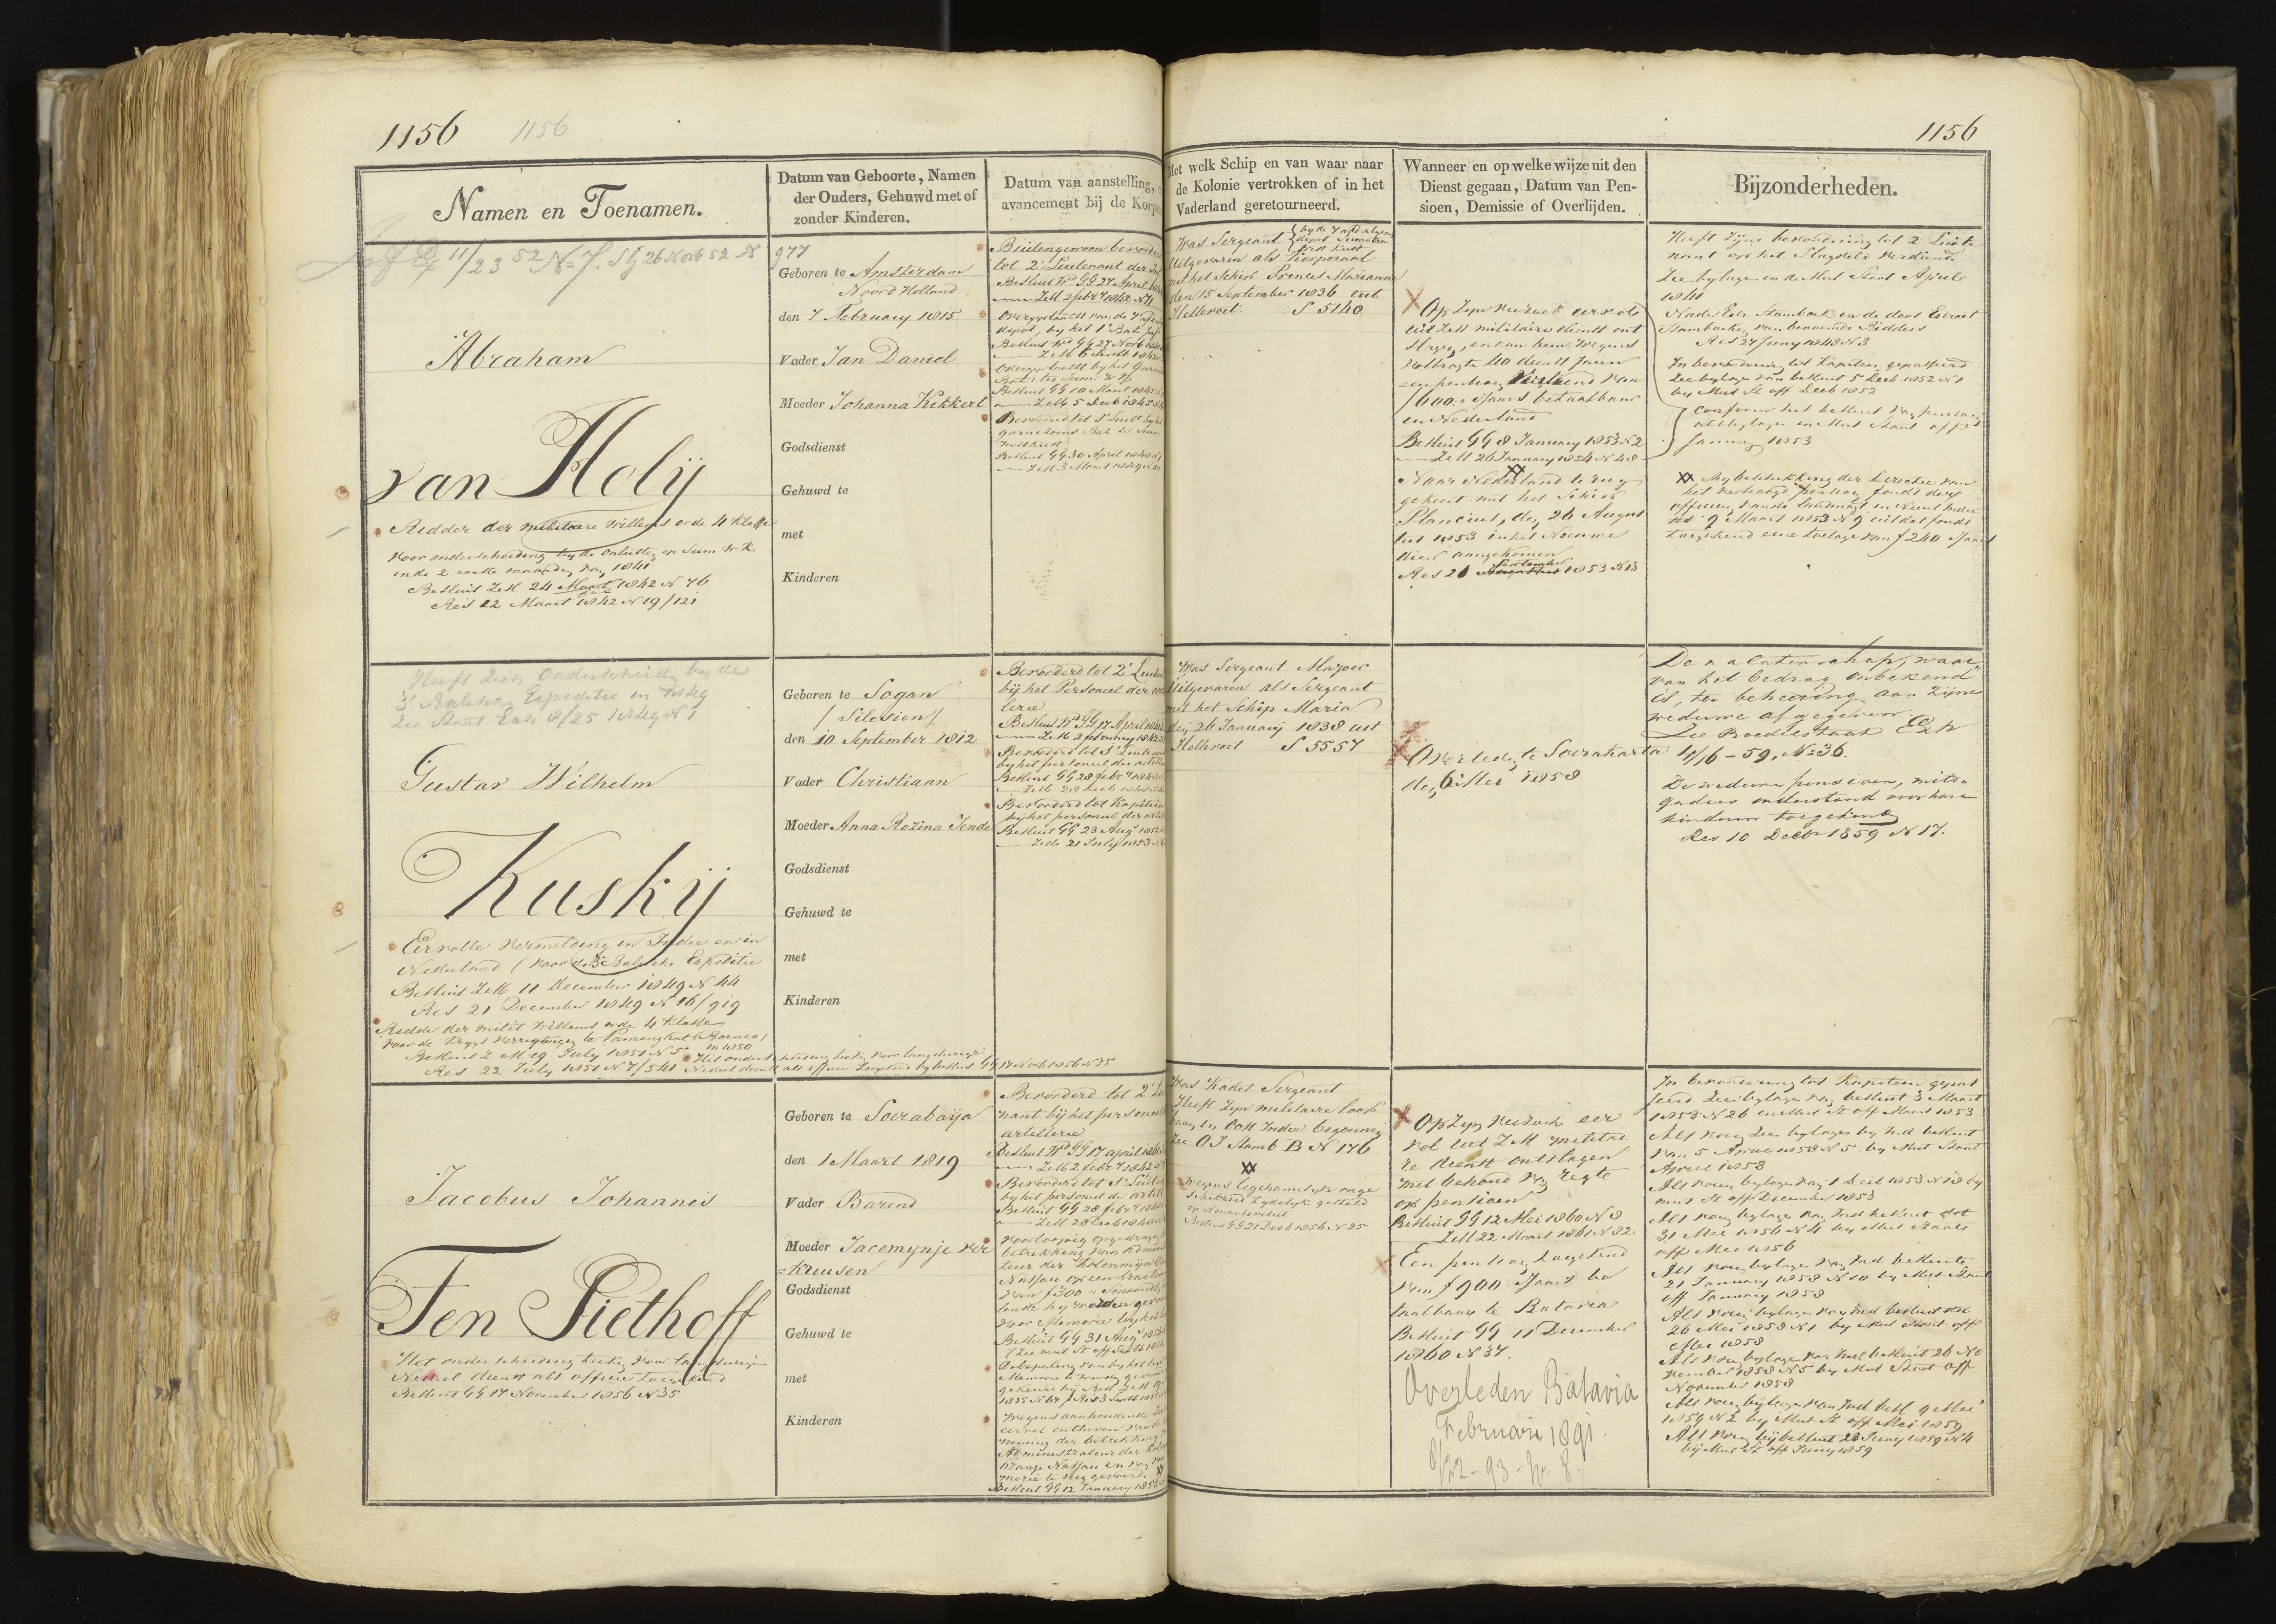 1156 1156
1156
Namen en Toenamen.
Datum van Geboorte, Namen
der Ouders, Gehuwd met of
zonder Kinderen.
Datum van aanstelling,
avancement bij de Korps
Met welk Schip en van waar naar
de Kolonie vertrokken of in het
Vaderland geretourneerd.
Wanneer en op welke wijze uit den
Dienst gegaan, Datum van Pen-
sioen, Demissie of Overlijden.
Bijzonderheden.
Abraham
van Holij
Ridder der militaire Willems orde 4 Klasse
voor onderscheiding by de onlusten op Sum. W K
in de 2 eerste maanden van 1841
Besluit ZM 24 1842 N 76
Res 22 Maart 1842 N 19/121
977
Geboren te Amsterdam
Noord Holland
den 7 February 1815
Vader Jan Daniel
Moeder Johanna Kikkert
Godsdienst
Gehuwd te
met
Kinderen
Buitengewoon bevorderd
tot 2e Luitenant der Inf
Besluit GG 27 April
ZM 2 febry 1842 N
Besluit GG 27 Novb
Besluit GG 10 Maart 1845
ZM 5 Decb 1845
Bevorderd tot 1e Luit by het
garnizoens Bat ter Sum
Westkust
Besluit GG 30 April 1848
ZM 3 Maart 1849
Was Sergeant
Uitgevaren als Korporaal
met het Schip Princes Marianne
den 15 September 1836 uit
Hellevoet S 5140
Op zyn verzoek eervol
uit ZM militaire dienst ont
slagen, en aan hem wegens
volbragte 40 dienst jaren
een pensioen verleend van
f 600 's Jaars betaalbaar
in Nederland
Besluit GG 8 January 1853 N 2
ZM 26 January 1854 N 48
Naar Nederland terug
gekeerd met het Schip
Plancius, den 26 Augus
tus 1853 in het Nieuwe
diep aangekomen
Res 21 September 1853 N 13
Heeft zyne bevordering tot 2 Luite
nant op het Slagveld verdiend
Zie bylage in de Mut Staat April
1841
Res 27 Juny 1843 N 3
In bevordering tot Kapitein gepasseerd
Zie bylage van besluit 5 Decb 1852 N 1
by Mut St off Decb 1852
Conform het besluit van pensioen
January 1853
By beschikking der Directie van
het verhoogd pensioen fonds der
officieren van de landmagt in Neerl Indie
dd 9 Maart 1853 N 9 uit dat fonds
toegekend eene toelage van f 240 's Jaars
3e Balische Expeditie in 1849
Gustav Wilhelm
Kuskij
Eervolle vermelding in Indie en in
Nederland (voor de 3e Balische Expeditie
Besluit ZM 11 December 1849 N 44
Res 21 December 1849 N 16/919
Ridder der milit Willems orde 4 Klasse
voor de Krygs verrigtingen te Pamangkat (Borneo)
in 1850
Besluit Z M 19 July 1851 N 5
Res 22 July 1851 N 7/541
Het onderscheidings teeken voor langdurige
Nederl dienst als officier toegekend by besluit GG 17 Novb 1856 N 35
Geboren te Sagan
/ Silesien /
den 10 September 1812
Vader Christiaan
Moeder Anna Rozina Jende
Godsdienst
Gehuwd te
met
Kinderen
Bevorderd tot 2e Luiten
bij het Personeel der ar
lerie
Besluit GG 17 April
ZM 2 february 1842
Bevorderd tot 1e Luitenant
by het personeel der artille
Besluit GG 28 febry
Bevorderd tot Kapitein
by het personeel der artille
Besluit GG 23 Augs 1852
ZM 21 July 1853
Was Sergeant Majoor
Uitgevaren als Sergeant
met het Schip Maria
den 26 January 1838 uit
Hellevoet S 5557
Overleden te Soerakarta
den 6 Mei 1858
De nalatenschap, waar
van het bedrag onbekend
is, ter beheering aan zijne
weduwe afgegeven
Zie Boedelstaat Exh
4/6-59, N 36.
De weduwe pensioen, mits
gaders onderstand voor hare
kinderen toegekend
Res 10 Decbr 1859 N 17.
Jacobus Johannes
Ten Siethoff
Het onderscheidings teeken voor langdurige
Nederl dienst als officier toegekend
Besluit GG 17 November 1856 N 35
Geboren te Soerabaija
den 1 Maart 1819
Vader Barend
Moeder Jacomynje ver
=Kuusen
Godsdienst
Gehuwd te
met
Kinderen
Bevorderd tot 2e Lui
nant bij het personeel
artillerie
Besluit GG 17 april
ZM 2 febry 1842
Bevorderd tot 1e Luite
by het personeel der artill
Besluit GG 28 febry
ZM 28 Decb 1848
Voorloopig opgedragen
betrekking van Admini
teur der Kolenmyn
Nassau
van f 300 's maands
Besluit GG 31 Augs
Wegens aanhoudende
eervol ontheven van de
neming der betrekking
Administrateur der Kolen
Oranje Nassau en van
morie te rug gevoerd
Besluit GG 12 January 1856
Was Kadet Sergeant
Heeft zyn militaire loop
baan in Oost Indie begonnen
Zie O I Stamb B N 176
Wegens ligchamelyke onge
schiktheid tydelyk gesteld
op Nonactiviteit
Besluit GG 21 Decb 1856 N 25
Op zyn verzoek eer
vol uit ZM militai
re dienst ontslagen
met behoud van regt
op pensioen
Besluit GG 12 Mei 1860 N 8
ZM 22 Maart 1861 N 82
Een pensioen toegekend
van f 900 's Jaars be
taalbaar te Batavia
Besluit GG 11 December
1860 N 37.
Overleden Batavia
Februari 1891.
In bevordering tot Kapitein gepas
seerd Zie bylage van besluit 3 Maart
1853 N 26 en Mut St off Maart 1853
Als voren Zie bylage by Ind besluit
van 5 April 1853 N 5 by Mut Staat
April 1853
Als voren bylage van 1 Decb 1853 N 18 by
mut St off December 1853
Als voren bylage van Ind besluit dd
31 Mei 1856 N 4 by Mut Staat
off Mei 1856
Als voren bylage van Ind besluit
21 January 1858 N 10 by Mut Staat
off January 1858
Als voren bylage van Ind besluit dd
26 Mei 1858 N 1 by Mut Staat off
Mei 1858
Als voren bylage van Ind besluit 26 No
vember 1858 N 5 by Mut Staat off
November 1858
Als voren bylage van Ind besl 9 Mei
1859 N 2 by Mut St off Mei 1859
Als voren bij besluit 28 Juny 1859 N 4
bij Mut St off Juny 1859